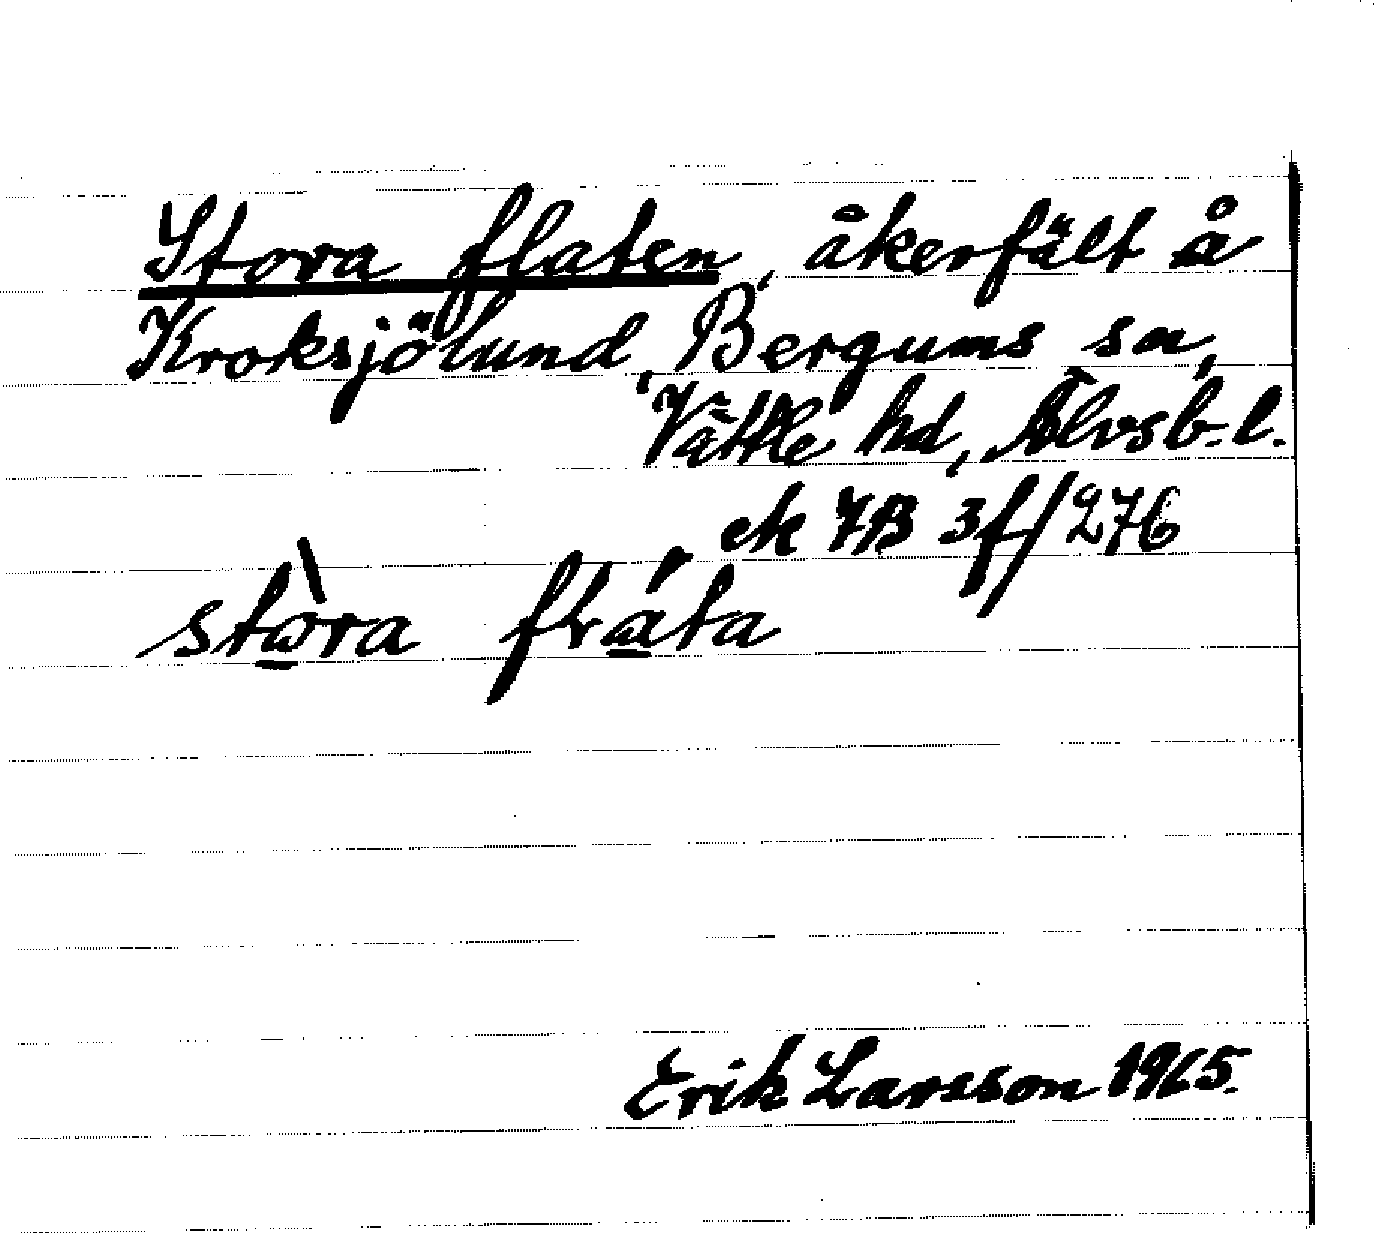 Stora flaten, åkerfält å
Kroksjölund, Bergums sn,
Vättle hd, Älvsb. l.
ek 7B 3f/276
stòra fláta
Erik Larsson 1965.